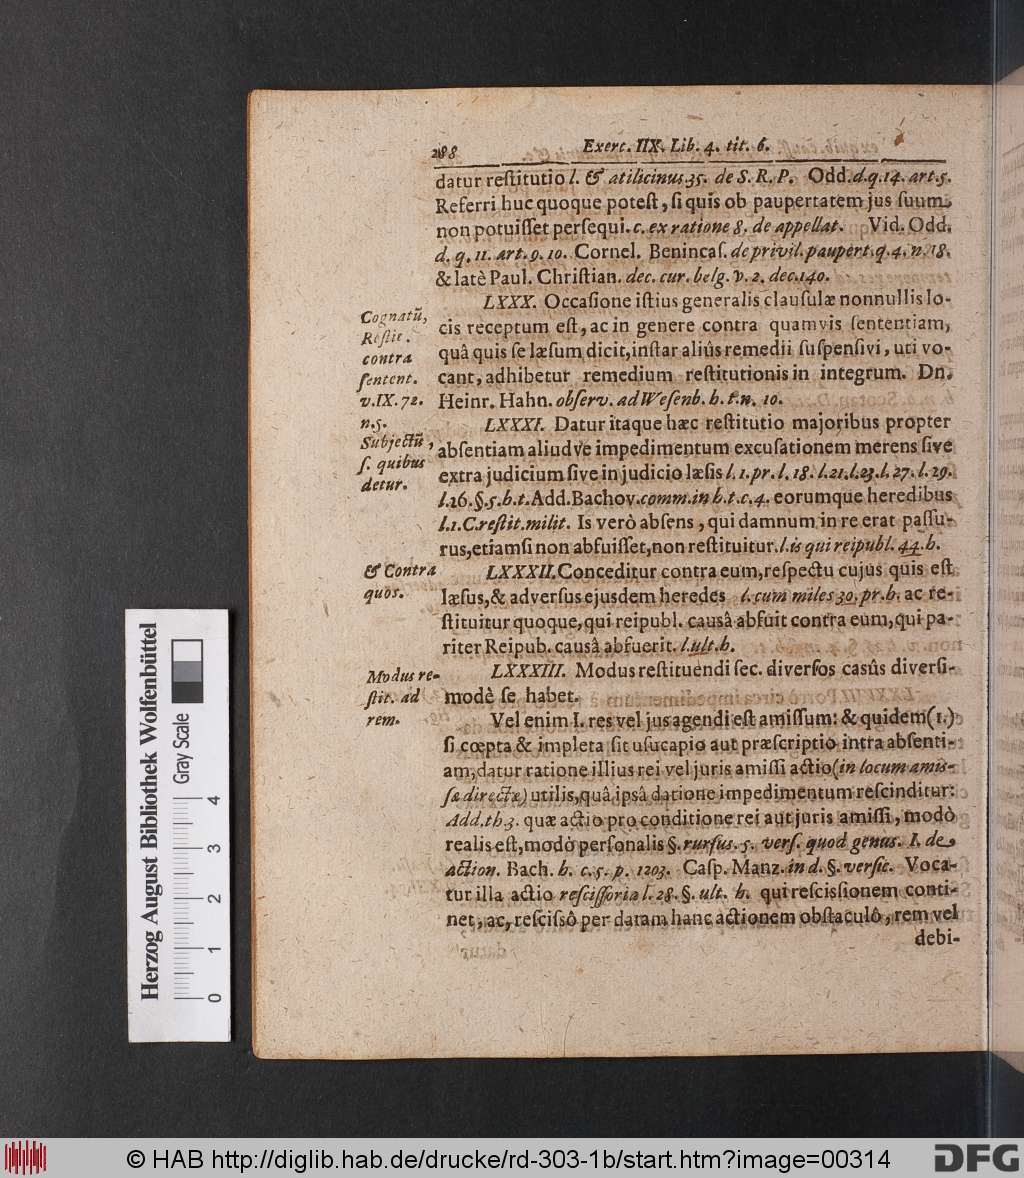 288 Exerc. IIX. Lib. 4. tit. 6.
datur reſtitutio l. & atilicinus 35. de S. R. P. Odd. d. q. 14. art. 5.
Referri huc quoque poteſt, ſi quis ob paupertatem jus ſuum
non potuiſſet perſequi. c. ex ratione 8. de appellat. Vid. Odd.
d. q. 11. art. 9. 10. Cornel. Benincaſ. de privil. paupert. q. 4. n. 18.
& latè Paul. Chriſtian. dec. cur. belg. v. 2. dec. 140.
LXXX. Occaſione iſtius generalis clauſulæ nonnullis lo-
cis receptum eſt, ac in genere contra quamvis ſententiam,
quâ quis ſe læſum dicit, inſtar aliûs remedii ſuſpenſivi, uti vo-
cant, adhibetur remedium reſtitutionis in integrum. Dn.
Heinr. Hahn. obſerv. ad Weſenb. h. t. n. 10.
Cognatū,
Reſtit.
contra
ſentent.
v. IX. 72.
n. 5.
LXXXI. Datur itaque hæc reſtitutio majoribus propter
abſentiam aliudve impedimentum excuſationem merens ſive
extra judicium ſive in judicio læſis l. 1. pr. l. 18. l. 21. l. 23. l. 27. l. 29.
l. 26. §. 5. h. t. Add. Bachov. comm. in h. t. c. 4. eorumque heredibus
l. 1. C. reſtit. milit. Is verò abſens, qui damnum in re erat paſſu-
rus, etiamſi non abfuiſſet, non reſtituitur. l. is qui reipubl. 44. h.
Subjectū,
ſ. quibus
detur.
LXXXII. Conceditur contra eum, reſpectu cujus quis eſt
læſus, & adverſus ejusdem heredes l. cum miles 30. pr. h. ac re-
ſtituitur quoque, qui reipubl. causâ abfuit contra eum, qui pa-
riter Reipub. causâ abfuerit. l. ult. h.
& Contra
quos.
LXXXIII. Modus reſtituendi ſec. diverſos casûs diverſi-
modè ſe habet.
Modus re-
ſtit. ad
rem.
Vel enim I. res vel jus agendi eſt amiſſum: & quidem (1.)
ſi cœpta & impleta ſit uſucapio aut præſcriptio intra abſenti-
am, datur ratione illius rei vel juris amiſſi actio (in locum amiſ-
ſæ directæ) utilis, quâ ipsâ datione impedimentum reſcinditur:
Add. th 3. quæ actio pro conditione rei aut juris amiſſi, modò
realis eſt, modò perſonalis §. rurſus. 5. verſ. quod genus. I. de
action. Bach. h. c. 5. p. 1203. Caſp. Manz. in d. §. verſic. Voca-
tur illa actio reſciſſoria l. 28. §. ult. h. qui reſcisſionem conti-
net, ac, reſciſsô per datam hanc actionem obſtaculô, rem vel
debi-
Herzog August Bibliothek Wolfenbüttel
Gray Scale
0 1 2 3 4
© HAB http://diglib.hab.de/drucke/rd-303-1b/start.htm?image=00314
DFG